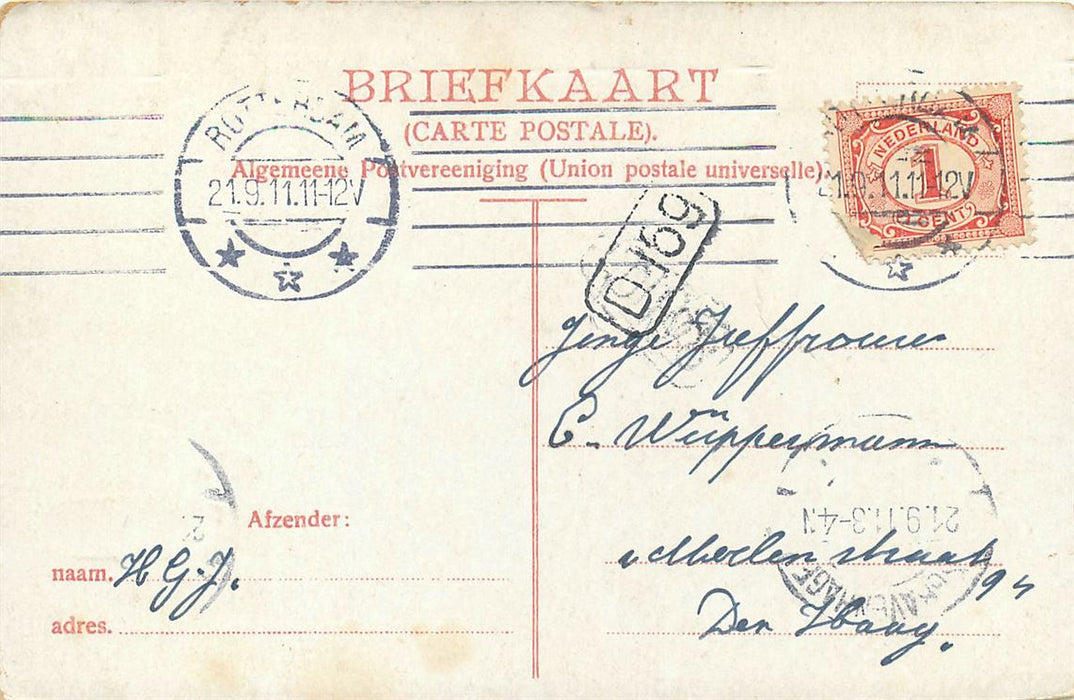 BRIEFKAART
(CARTE POSTALE).
Algemeene Postvereeniging (Union postale universelle)
ROTTERDAM
21.9.11.11-12V
21.9.11.11-12V
NEDERLAND
1
CENT
D169
Jonge Jeffrouw
E. Wüppermann
v Merlen straat
94
Den Haag.
21.9.11.3-4N
'S GRAVENHAGE
Afzender:
naam. H G. J.
adres.